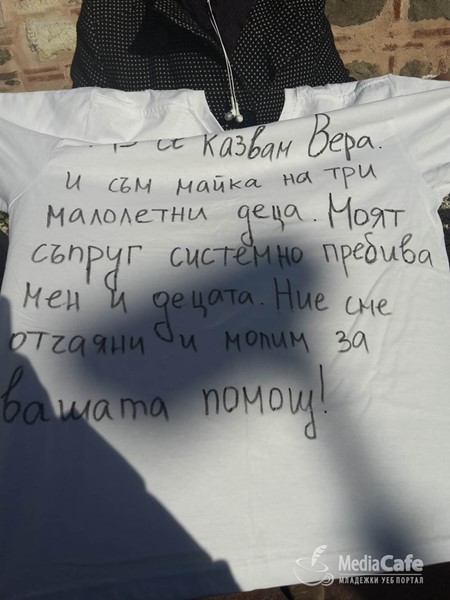 се казвам Вера.
и съм майка на три
малолетни деца. Моят
съпруг системно пребива
мен и децата. Ние сме
отчаяни и молим за
вашата помощ!
MediaCafe
МЛАДЕЖКИ УЕБ ПОРТАЛ